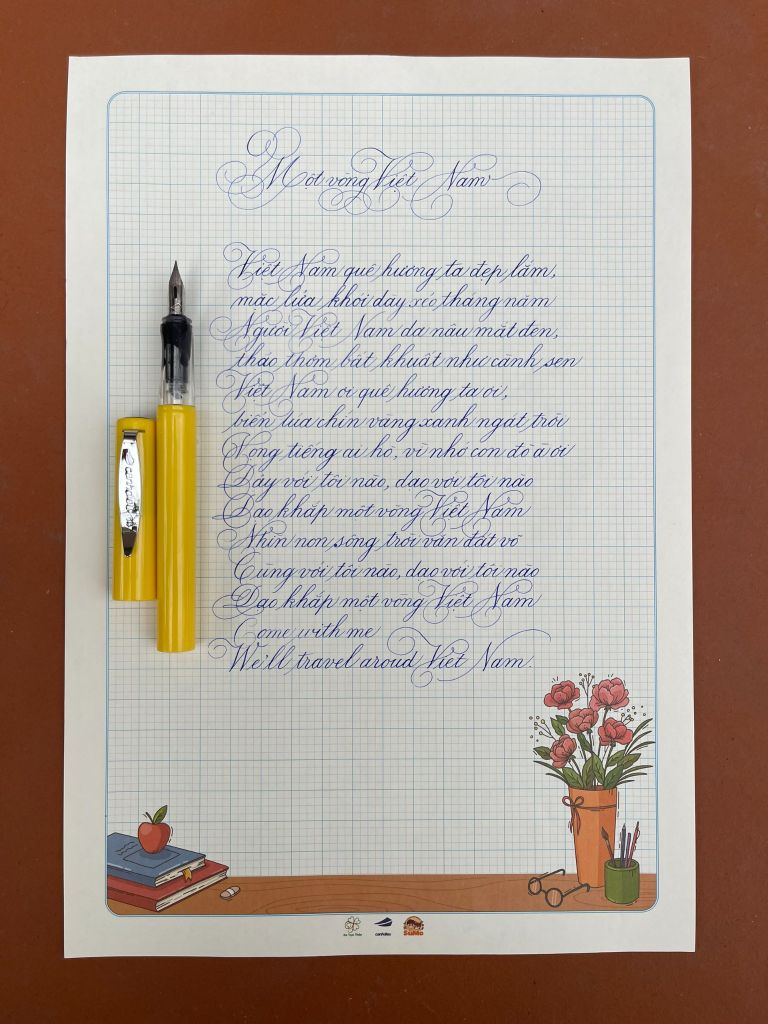 Một vòng Việt Nam
Việt Nam quê hương ta đẹp lắm,
mặc lửa khói dày xéo tháng năm
Người Việt Nam da nâu mắt đen,
thảo thơm bất khuất như cánh sen
Việt Nam ơi quê hương ta ơi,
biển lúa chín vàng xanh ngát trời
Vọng tiếng ai hò, vì nhớ con đò à ơi
Đây với tôi nào, dạo với tôi nào
Dạo khắp một vòng Việt Nam
Nhìn non sông trời văn đất võ
Cùng với tôi nào, dạo với tôi nào
Dạo khắp một vòng Việt Nam
Come with me
We'll travel aroud Việt Nam.
SuMo